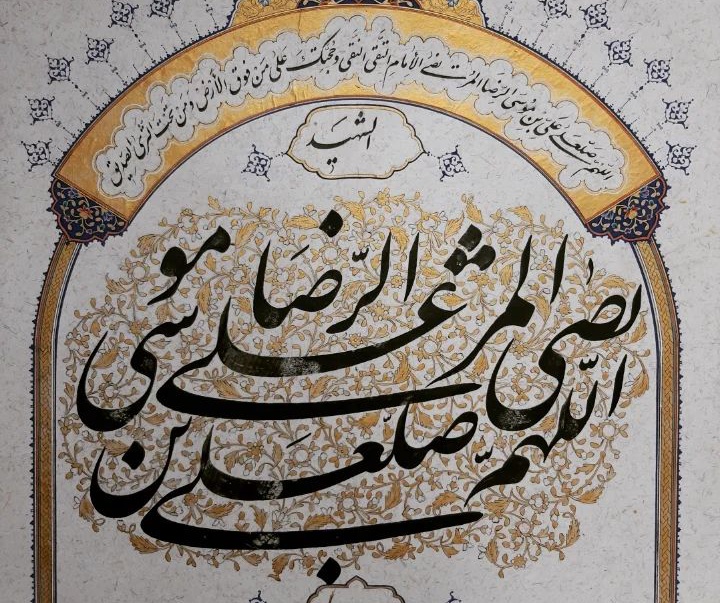 اللهم صل علی علی بن موسی الرضا المرتضی الإمام التقی النقی و حجتک علی من فوق الأرض و من تحت الثری الصدیق
الشهید
اللّهمّ صلّ علی علی بن موسی الرّضا المرتضی